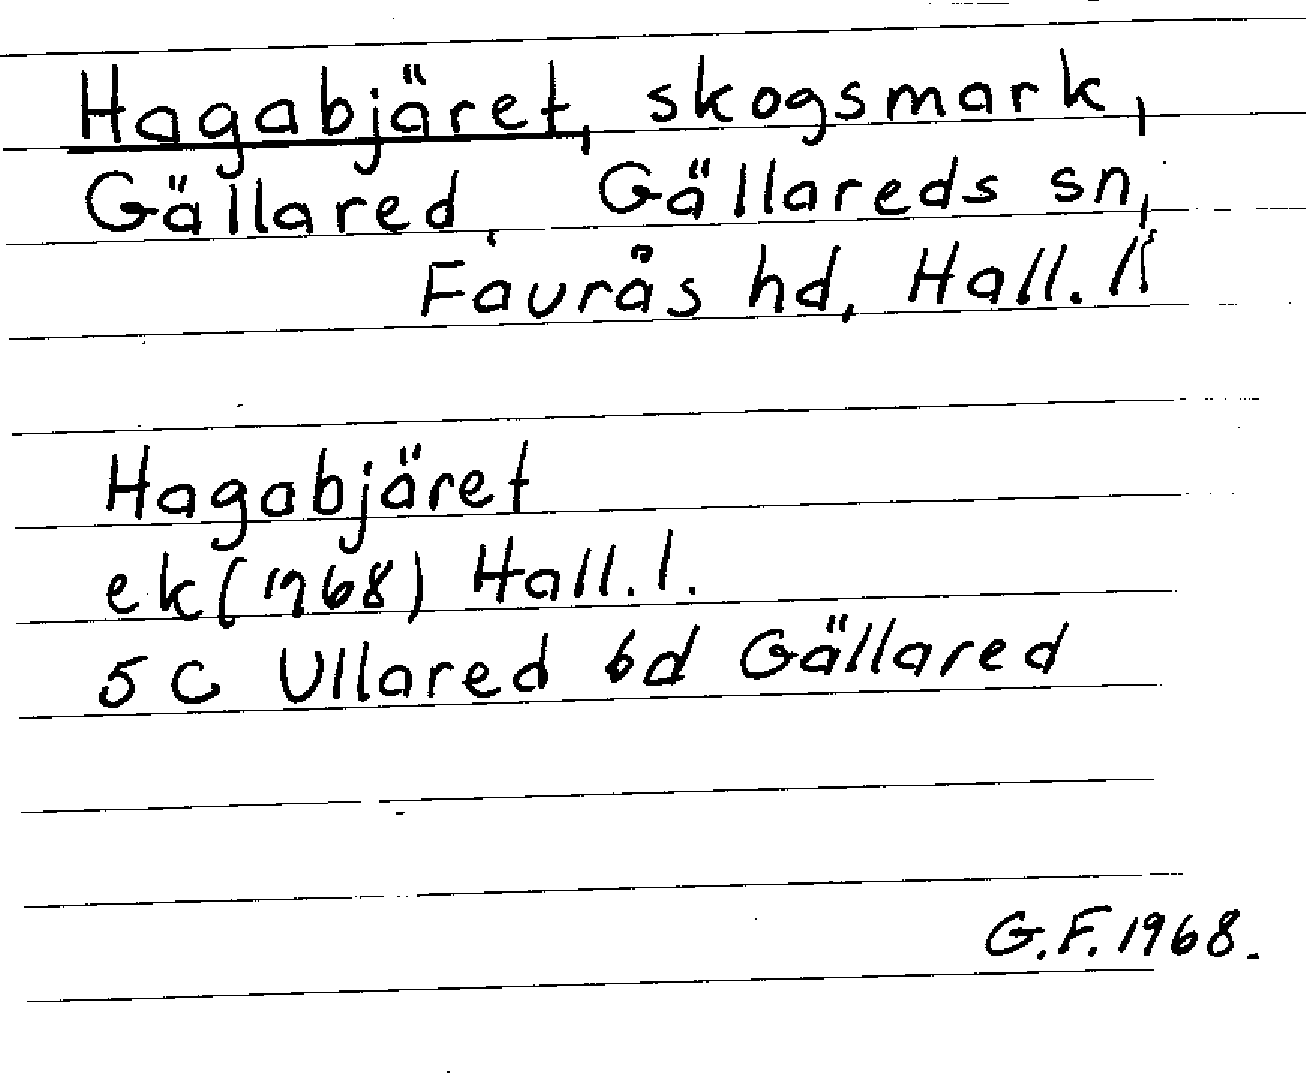 Hagabjäret, skogsmark,
Gällared, Gällareds sn,
Faurås hd, Hall. l
Hagabjäret
ek (1968) Hall. l.
5 C Ullared 6d Gällared
G.F. 1968.